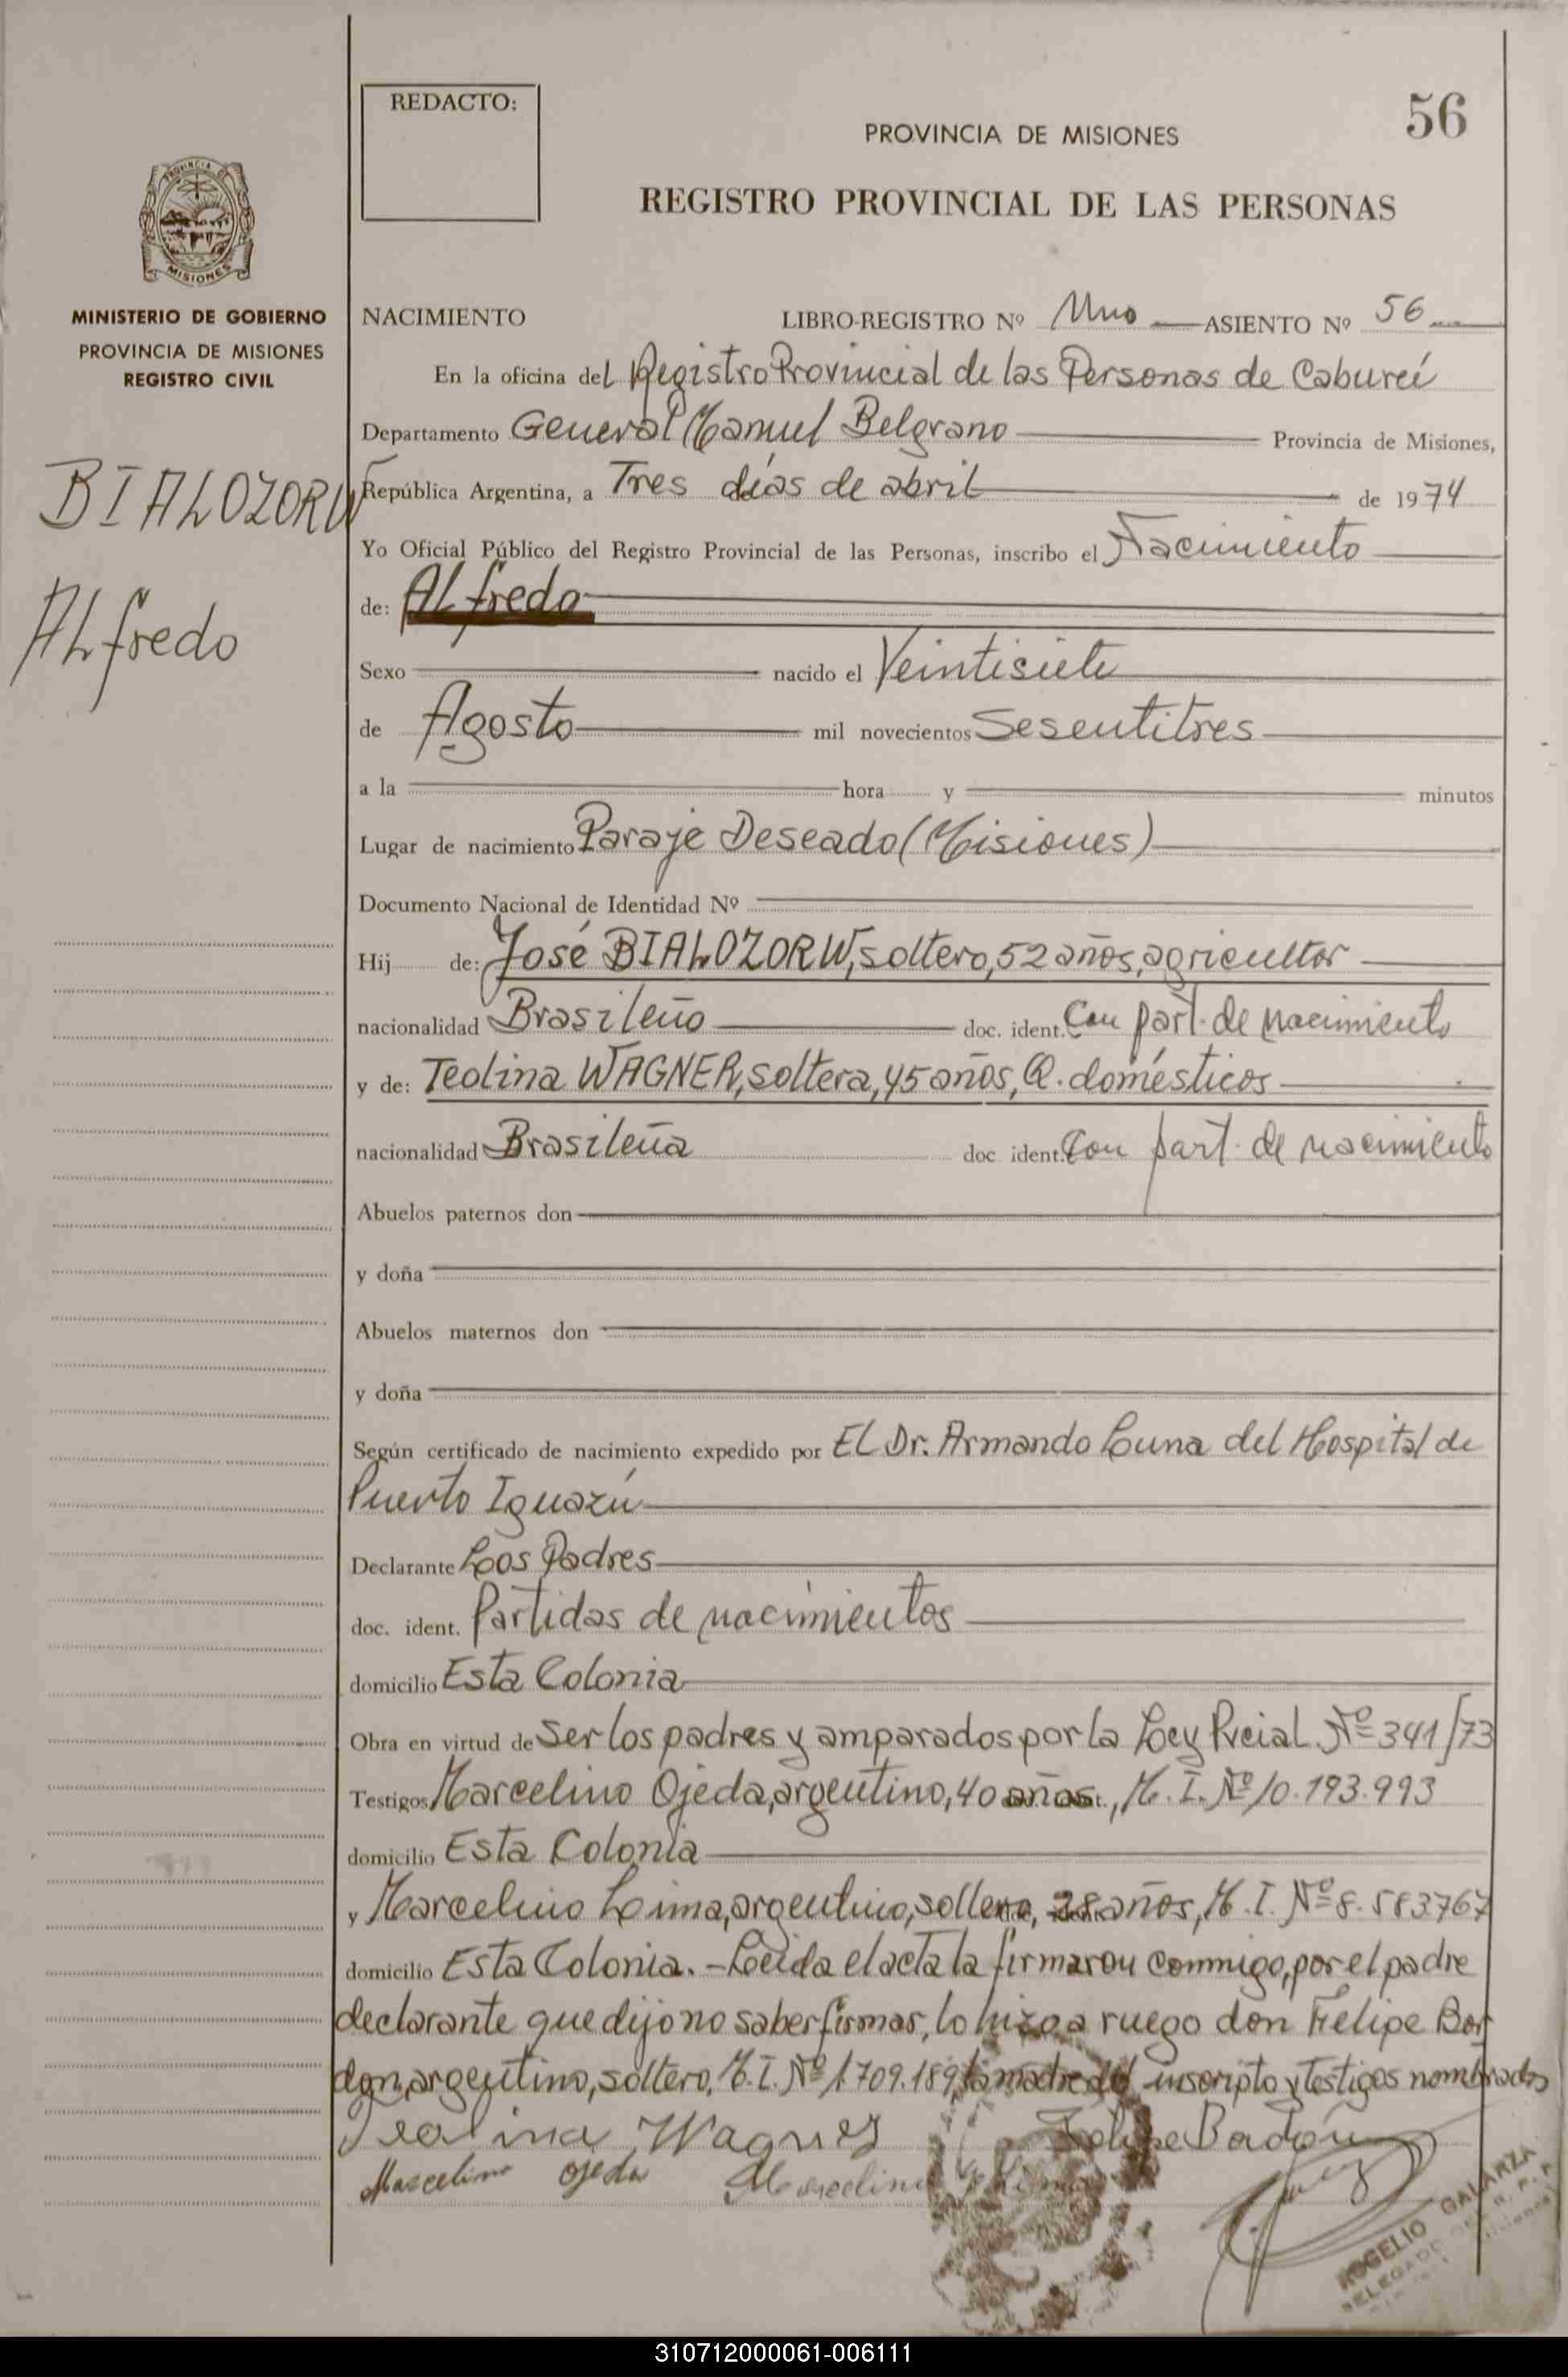 REDACTO:
PROVINCIA DE MISIONES
56
REGISTRO PROVINCIAL DE LAS PERSONAS
PROVINCIA DE
MISIONES
MINISTERIO DE GOBIERNO
PROVINCIA DE MISIONES
REGISTRO CIVIL
BIALOZORW
ALfredo
NACIMIENTO LIBRO-REGISTRO Nº Uno ASIENTO Nº 56
En la oficina del Registro Provincial de las Personas de Cabureí
Departamento General Manuel Belgrano Provincia de Misiones,
República Argentina, a Tres días de abril de 1974
Yo Oficial Público del Registro Provincial de las Personas, inscribo el Nacimiento
de: ALfredo
Sexo nacido el Veintisiete
de Agosto mil novecientos Sesentitres
a la hora y minutos
Lugar de nacimiento Paraje Deseado (Misiones)
Documento Nacional de Identidad Nº
Hij de: José BIALOZORW, soltero, 52 años, agricultor
nacionalidad Brasileño doc. ident. Con part. de nacimiento
y de: Teolina WAGNER, soltera, 45 años, Q. domésticos
nacionalidad Brasileña doc ident. Con part. de nacimiento
Abuelos paternos don
y doña
Abuelos maternos don
y doña
Según certificado de nacimiento expedido por EL Dr. Armando Luna del Hospital de
Puerto Iguazú
Declarante Los Padres
doc. ident. Partidas de nacimientos
domicilio Esta Colonia
Obra en virtud de Ser los padres y amparados por la Ley Pvcial. Nº 341/73
Testigos Marcelino Ojeda, argentino, 40 años, M. I. Nº 10.193.993
domicilio Esta Colonia
y Marcelino Lima, argentino, soltero, 28 años, M. I. Nº 8.583767
domicilio Esta Colonia. - Leida el acta la firmaron conmigo, por el padre
declarante que dijo no saber firmar, lo hizo a ruego don Felipe Bor
don, argentino, soltero, M. I. Nº 1.709.189, la madre del inscripto y testigos nombrados
Teolina Wagner Felipe Bordón
Marcelino Ojeda Marcelino Lima
ROGELIO GALARZA
DELEGADO
310712000061-006111